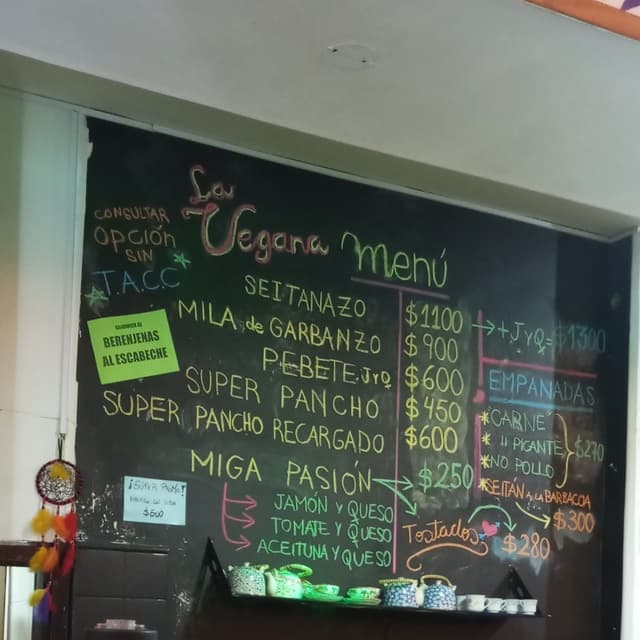 La
Vegana Menú
CONSULTAR
OPCIÓN
SIN
T.A.C.C
SANDWICH DE
BERENJENAS
AL ESCABECHE
SEITANAZO $1100 → + JyQ = $1300
MILA de GARBANZO $900
PEBETE JyQ $600
SUPER PANCHO $450
SUPER PANCHO RECARGADO $600
MIGA PASIÓN $250
JAMÓN Y QUESO
TOMATE Y QUESO
ACEITUNA Y QUESO
Tostados $280
EMPANADAS
*CARNE
* " PICANTE $270
*NO POLLO
*SEITAN a la BARBACOA
$300
¡SUPER PROMO!
$600